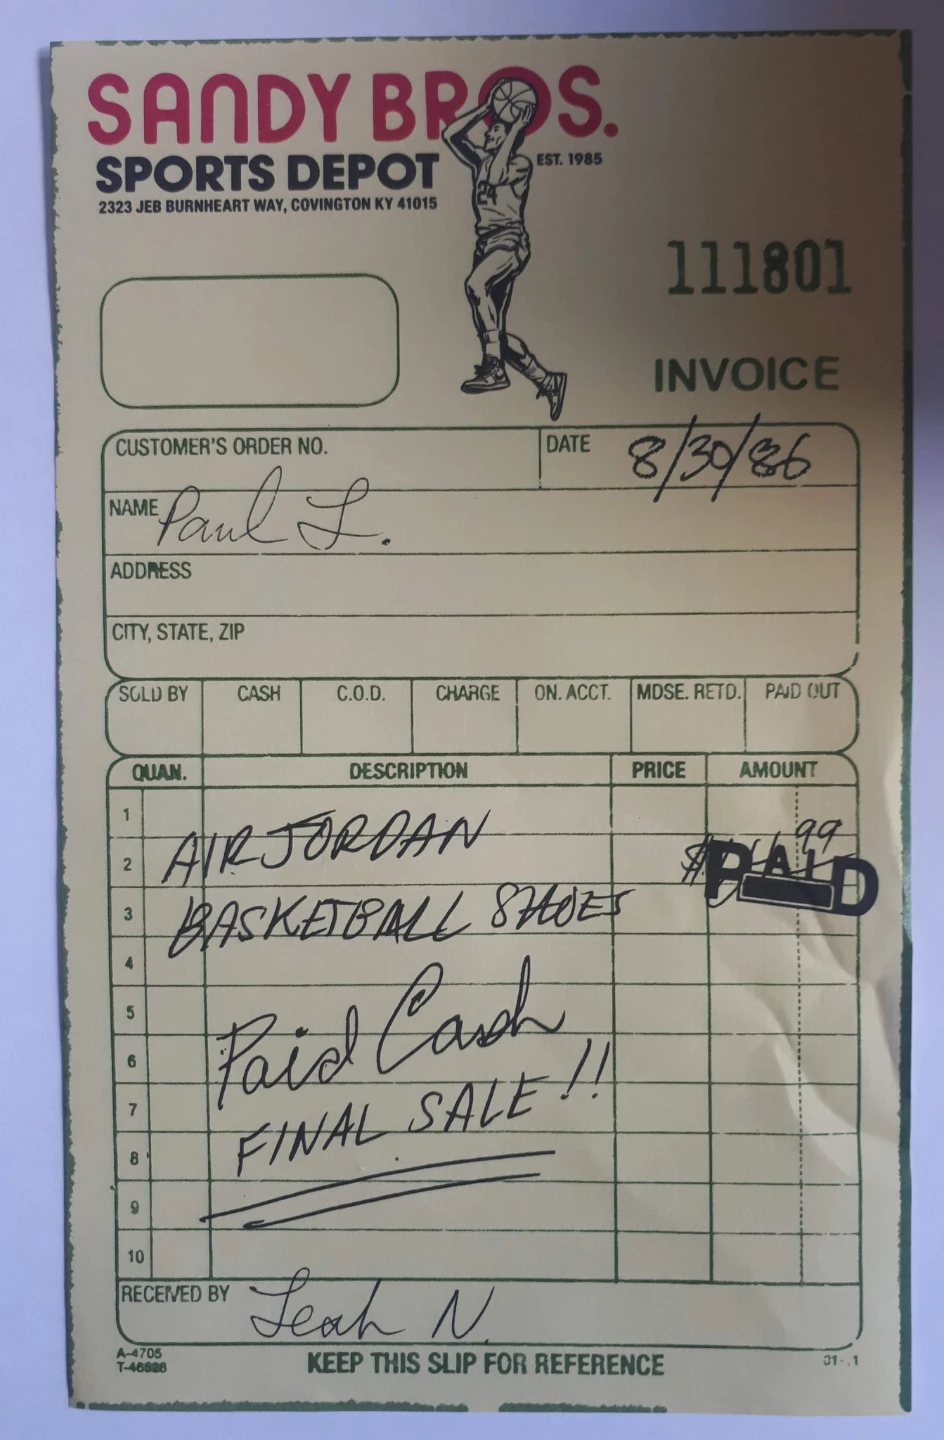 SANDY BROS.
SPORTS DEPOT
EST. 1985
2323 JEB BURNHEART WAY, COVINGTON KY 41015
24
111801
INVOICE
CUSTOMER'S ORDER NO.
DATE 8/30/86
NAME Paul L.
ADDRESS
CITY, STATE, ZIP
SOLD BY CASH C.O.D. CHARGE ON. ACCT. MDSE. RETD. PAID OUT
QUAN. DESCRIPTION PRICE AMOUNT
1
2 AIR JORDAN
99
PAID
3 BASKETBALL SHOES
4
5
6 Paid Cash
7
8 FINAL SALE!!
9
10
RECEIVED BY Leah N.
A-4705
KEEP THIS SLIP FOR REFERENCE